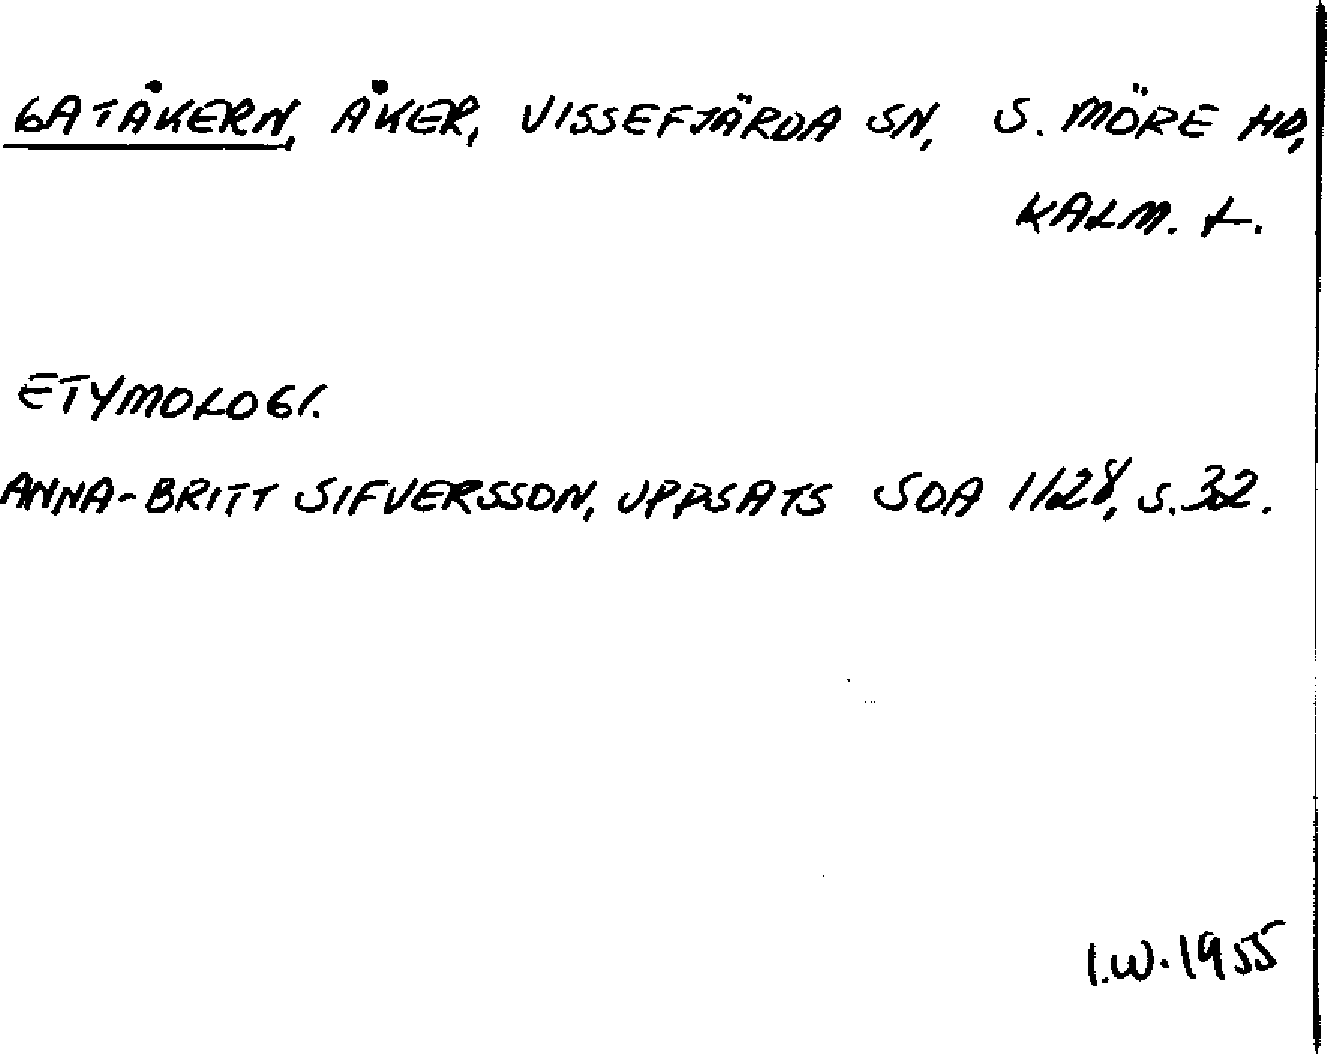 GATÅKERN, ÅKER, VISSEFJÄRDA SN, S. MÖRE HD,
KALM. L.
ETYMOLOGI.
ANNA-BRITT SIFVERSSON, UPPSATS SOA 1128, S. 32.
I.W. 1955